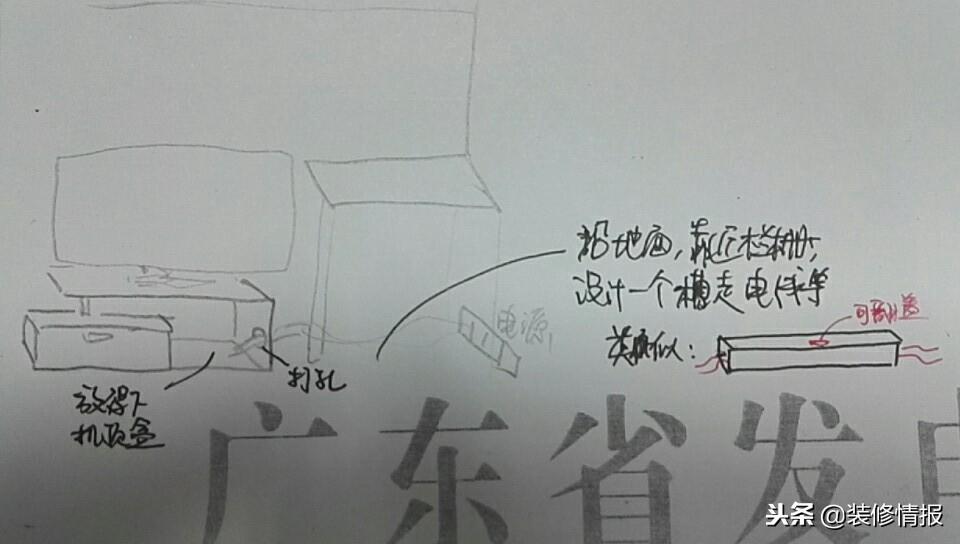 沿地面，靠近栏栅，
设计一个槽走电线等
电源
可翻盖
类似：
打孔
放得下
机顶盒
广东省发电
头条 @装修情报